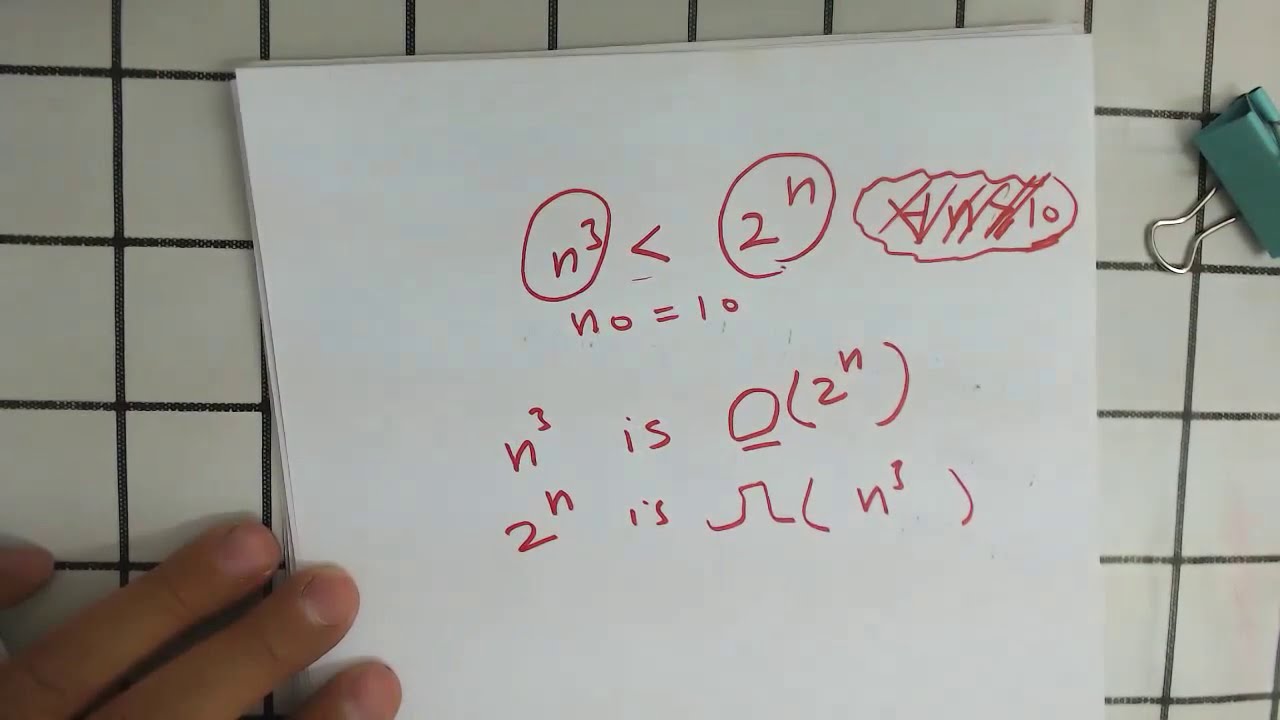 n³ < 2ⁿ
n0 = 10
n³ is O(2ⁿ)
2ⁿ is Ω(n³)